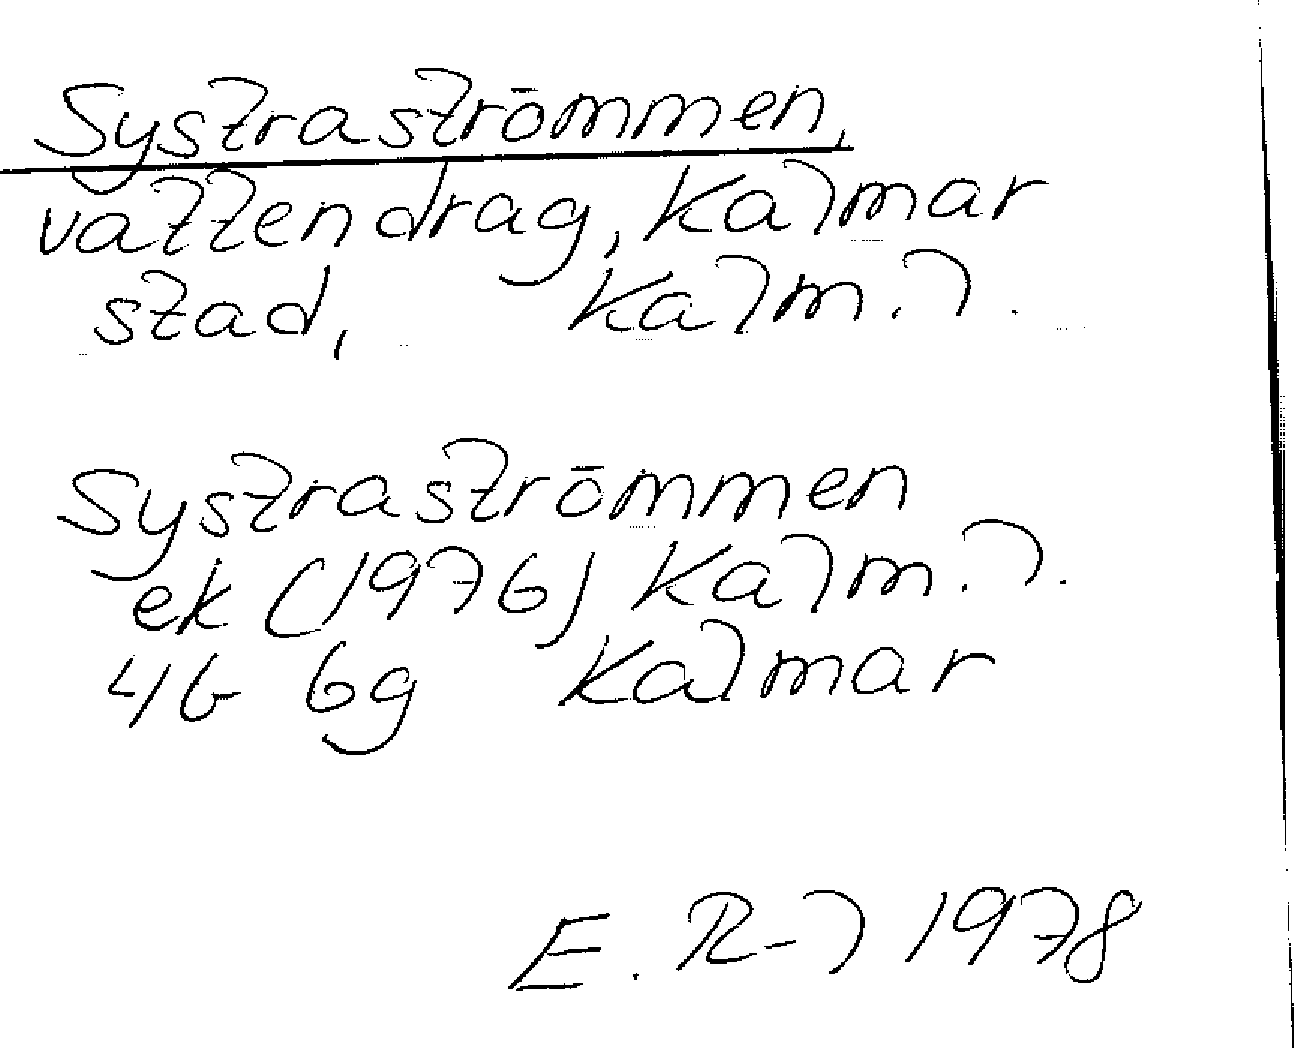 Systraströmmen,
vattendrag, Kalmar
stad, Kalm. l.
Systraströmmen
ek (1976) Kalm. l.
4G 6g Kalmar
E. R-l 1978